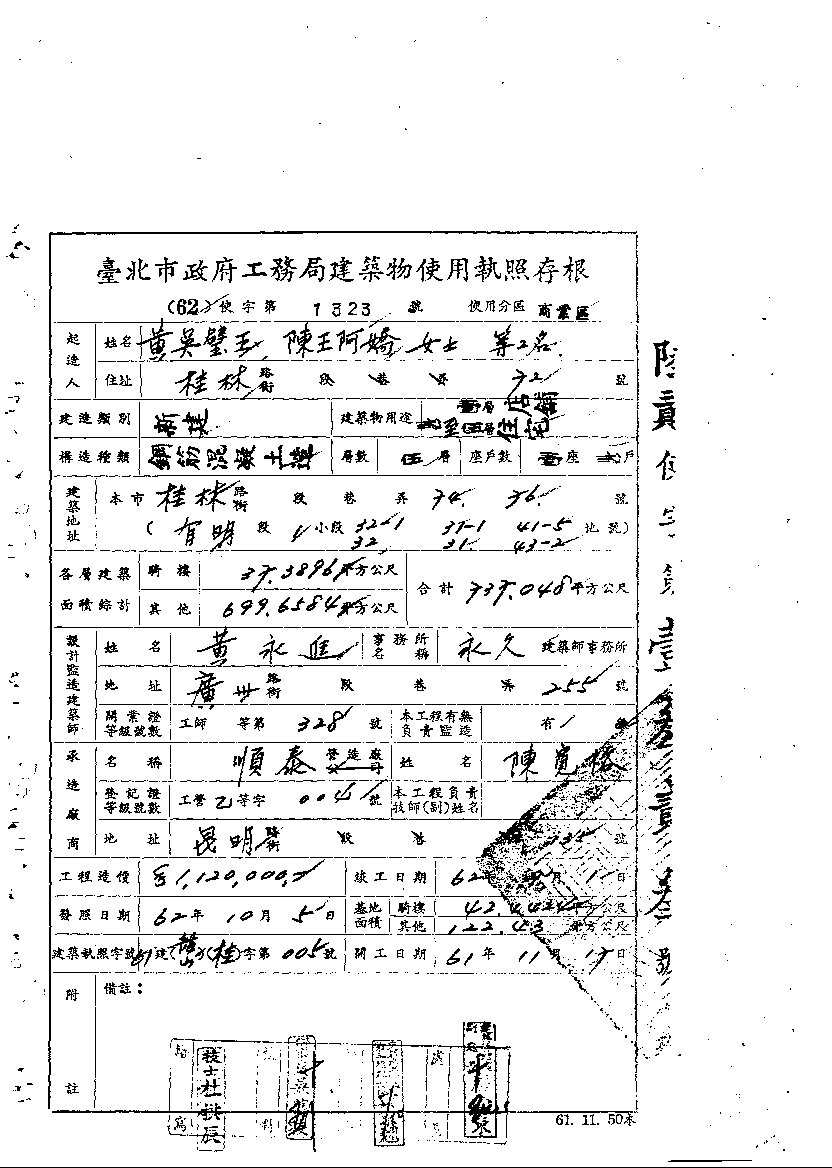 臺北市政府工務局建築物使用執照存根
(62) 使字第 1323 號 使用分區 商業區
起造人 姓名 黃吳璧玉、陳王阿嬌 女士 等2名
住址 桂林 路街 段 巷 弄 72 號
建造類別 新建 建築物用途 壹層店鋪 貳至伍層住宅
構造種類 鋼筋混凝土造 層數 伍層 座戶數 壹座 戶
建築地址 本市 桂林 路街 段 巷 弄 74. 76. 號
( 有明 段 小段 32-1 31-1 41-5 地號)
32 31. 43-2
各層建築面積綜計 騎樓 37.3896 平方公尺 合計 737.048 平方公尺
其他 699.6584 平方公尺
設計監造建築師 姓名 黃永進 事務所名稱 永久 建築師事務所
地址 廣州 路街 段 巷 弄 255 號
開業證等級號數 工師 等第 328 號 本工程有無負責監造 有 無
承造廠商 名稱 順泰 營造廠公司 姓名 陳寬
登記證等級號數 工營乙等字 號 本工程負責技師(副)姓名
地址 昆明 路街 段 巷 號
工程造價 1,120,000. 竣工日期 62年 月 1日
發照日期 62年 10月 5日 基地面積 騎樓 42.4424 平方公尺
其他 122.43 平方公尺
建築執照字號 61建( )(桂)字第 005號 開工日期 61年 11月 17日
附註 備註:
技士杜
61. 11. 50本